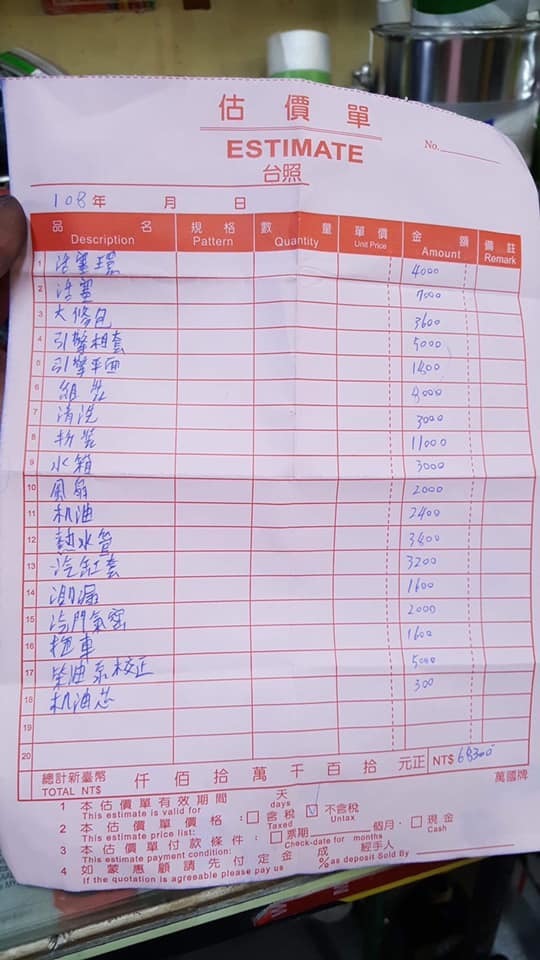 估價單
ESTIMATE
No.
台照
108年 月 日
品名 規格 數量 單價 金額 備註
Description Pattern Quantity Unit Price Amount Remark
1 活塞環 4000
2 活塞 7000
3 大修包 3600
4 引擎相套 5000
5 引擎平面 1800
6 組裝 8000
7 清洗 3000
8 拆裝 11000
9 水箱 3000
10 風扇 2000
11 机油 2400
12 熱水管 3800
13 汽缸套 3200
14 測漏 1600
15 汽門氣密 2000
16 拖車 1600
17 柴油泵校正 5000
18 机油芯 300
19
20
總計新臺幣 仟佰拾萬千百拾元正 NT$ 68300
TOTAL NT$
萬國牌
1 本估價單有效期間 天
This estimate is valid for days
2 本估價單價格:□含稅 ☑不含稅
This estimate price list: Taxed Untax
3 本估價單付款條件:□票期 個月·□現金
This estimate payment condition: Check-date for months Cash
4 如蒙惠顧請先付定金 成 經手人
If the quotation is agreeable please pay us %as deposit Sold By